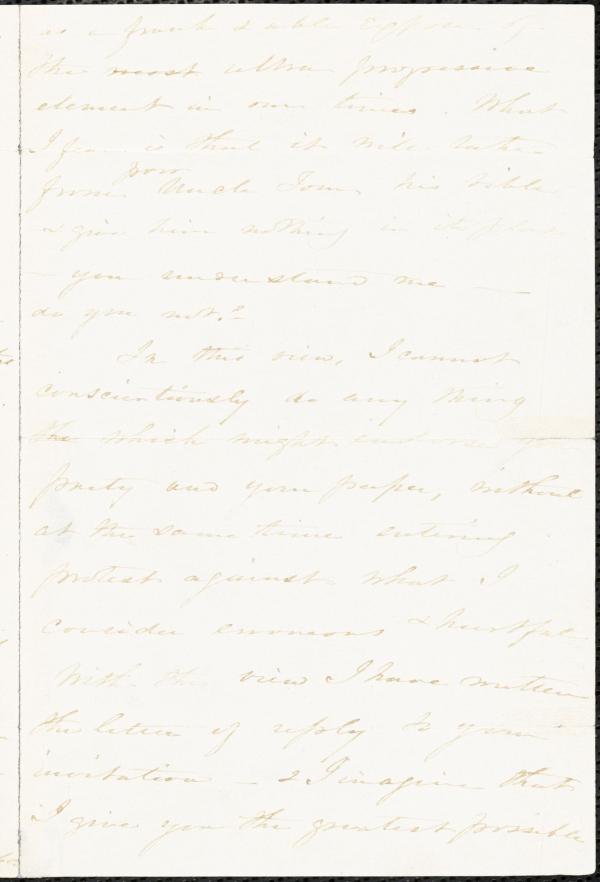 as a frank & able exposé of
the most ultra progressive
element in our times. What
I fear is that it will take
from poor Uncle Tom his bible
& give him nothing in its place
— you understand me —
do you not? —
In this view, I cannot
conscientiously do any thing
the which might endorse your
party and your paper, without
at the same time entering
protest against what I
consider erroneous & hurtful
With this view I have written
the letter of reply to your
invitation — & I imagine that
I give you the greatest possible